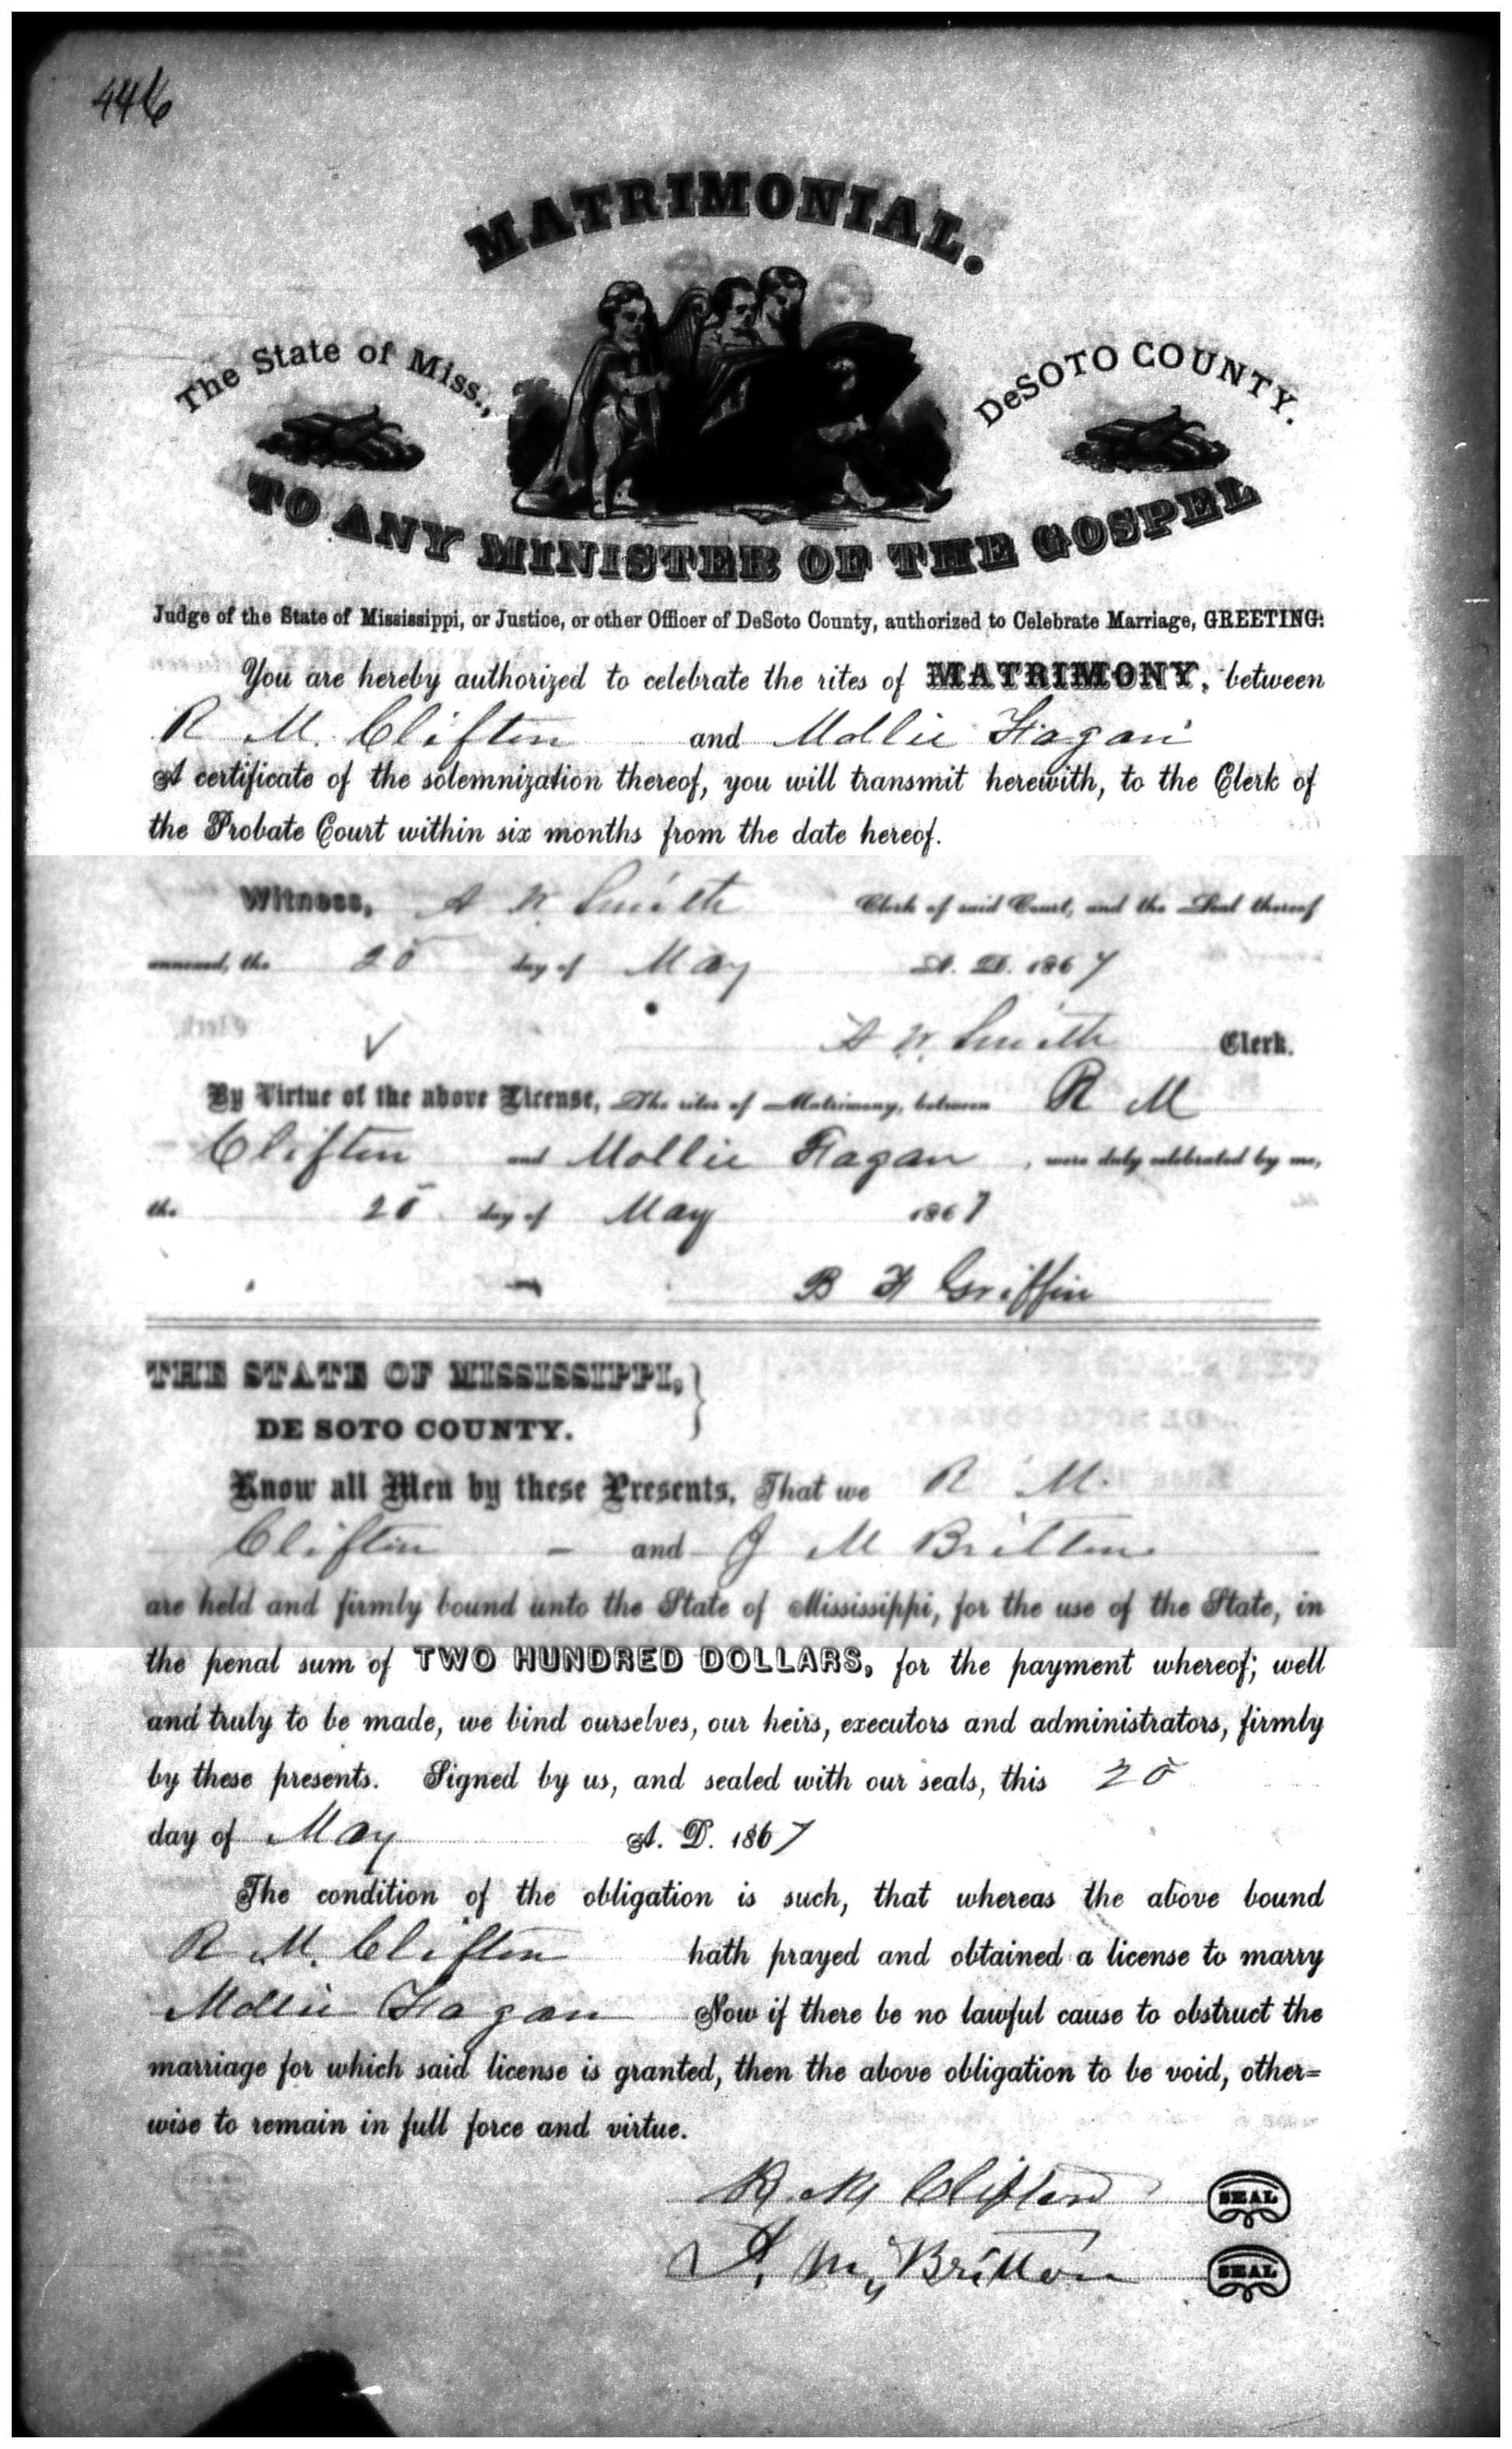 446
MATRIMONIAL.
The State of Miss.,
DeSOTO COUNTY.
TO ANY MINISTER OF THE GOSPEL
Judge of the State of Mississippi, or Justice, or other Officer of DeSoto County, authorized to Celebrate Marriage, GREETING:
You are hereby authorized to celebrate the rites of MATRIMONY, between
R M. Clifton and Mollie Fagan
A certificate of the solemnization thereof, you will transmit herewith, to the Clerk of
the Probate Court within six months from the date hereof.
Witness, A W Smith Clerk of said Court, and the Seal thereof
annexed, the 25 day of May A. D. 1867
A W. Smith Clerk.
By Virtue of the above License, The rites of Matrimony, between R M
Clifton and Mollie Fagan, were duly celebrated by me,
the 25 day of May 1867
B F Griffin
THE STATE OF MISSISSIPPI,
DE SOTO COUNTY.
Know all Men by these Presents, That we R M.
Clifton - and J M Britton
are held and firmly bound unto the State of Mississippi, for the use of the State, in
the penal sum of TWO HUNDRED DOLLARS, for the payment whereof; well
and truly to be made, we bind ourselves, our heirs, executors and administrators, firmly
by these presents. Signed by us, and sealed with our seals, this 25
day of May A. D. 1867
The condition of the obligation is such, that whereas the above bound
R M. Clifton hath prayed and obtained a license to marry
Mollie Fagan Now if there be no lawful cause to obstruct the
marriage for which said license is granted, then the above obligation to be void, other=
wise to remain in full force and virtue.
R. M Clifton SEAL
M, Britton SEAL